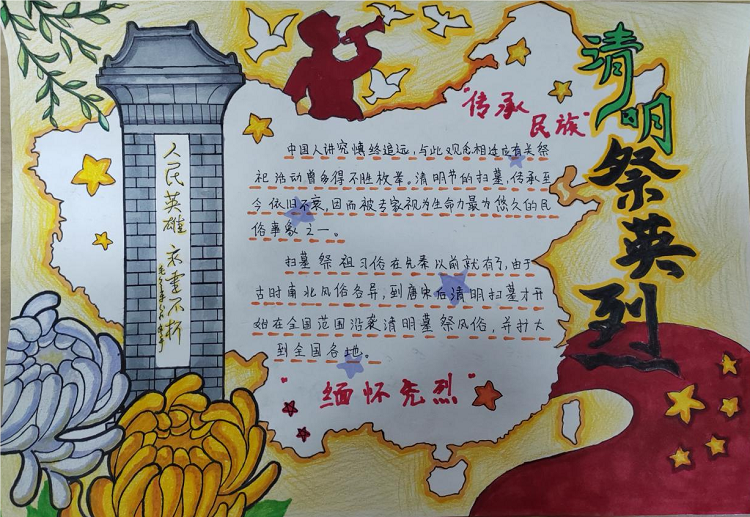 清明祭英烈
"传承
民族"
中国人讲究慎终追远,与此观念相适应有关祭
祀活动曾多得不胜枚举。清明节的扫墓,传承至
今依旧不衰,因而被专家视为生命力最为悠久的民
俗事象之一。
扫墓祭祖习俗在先秦以前就有了,由于
古时南北风俗各异,到唐宋后清明扫墓才开
始在全国范围沿袭清明墓祭风俗,并扩大
到全国各地。
"缅怀先烈"
人民英雄永垂不朽